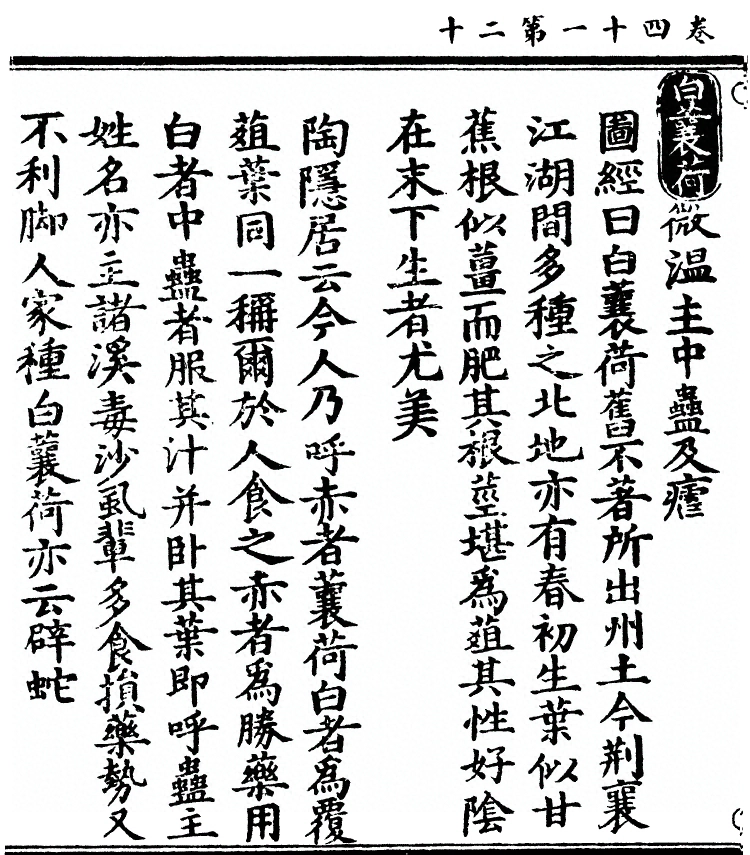 卷四十一第二十
白蘘荷微温主中蠱及瘧
圖經曰白蘘荷舊不著所出州土今荆襄
江湖間多種之北地亦有春初生葉似甘
蕉根似薑而肥其根莖堪為葅其性好陰
在末下生者尤美
陶隱居云今人乃呼赤者蘘荷白者為覆
葅葉同一稱爾於人食之赤者為勝藥用
白者中蠱者服其汁并卧其葉即呼蠱主
姓名亦主諸溪毒沙虱輩多食損藥勢又
不利脚人家種白蘘荷亦云辟蛇